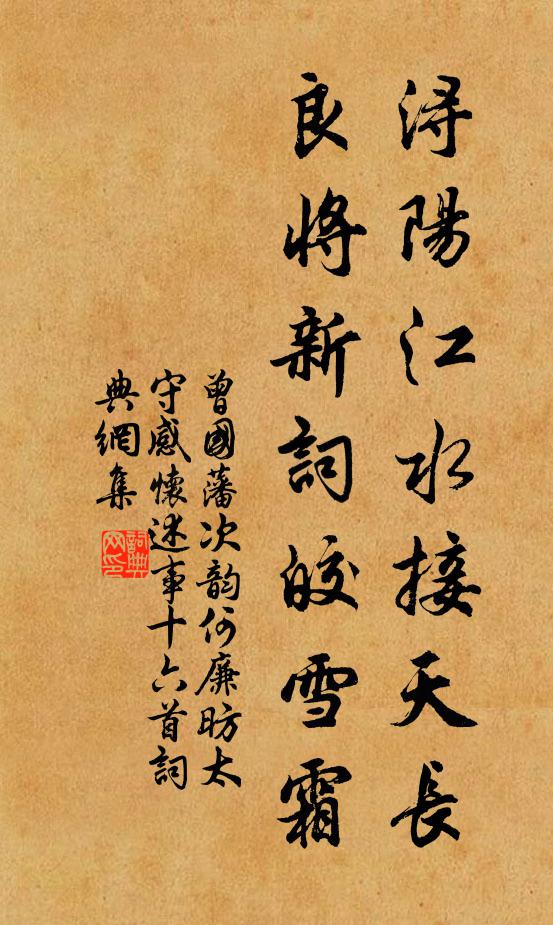 浔陽江水接天長
良將新詞皎雪霜
曾國藩次韵何廉昉太
守感懷述事十六首詞
典網集
詞典
网印